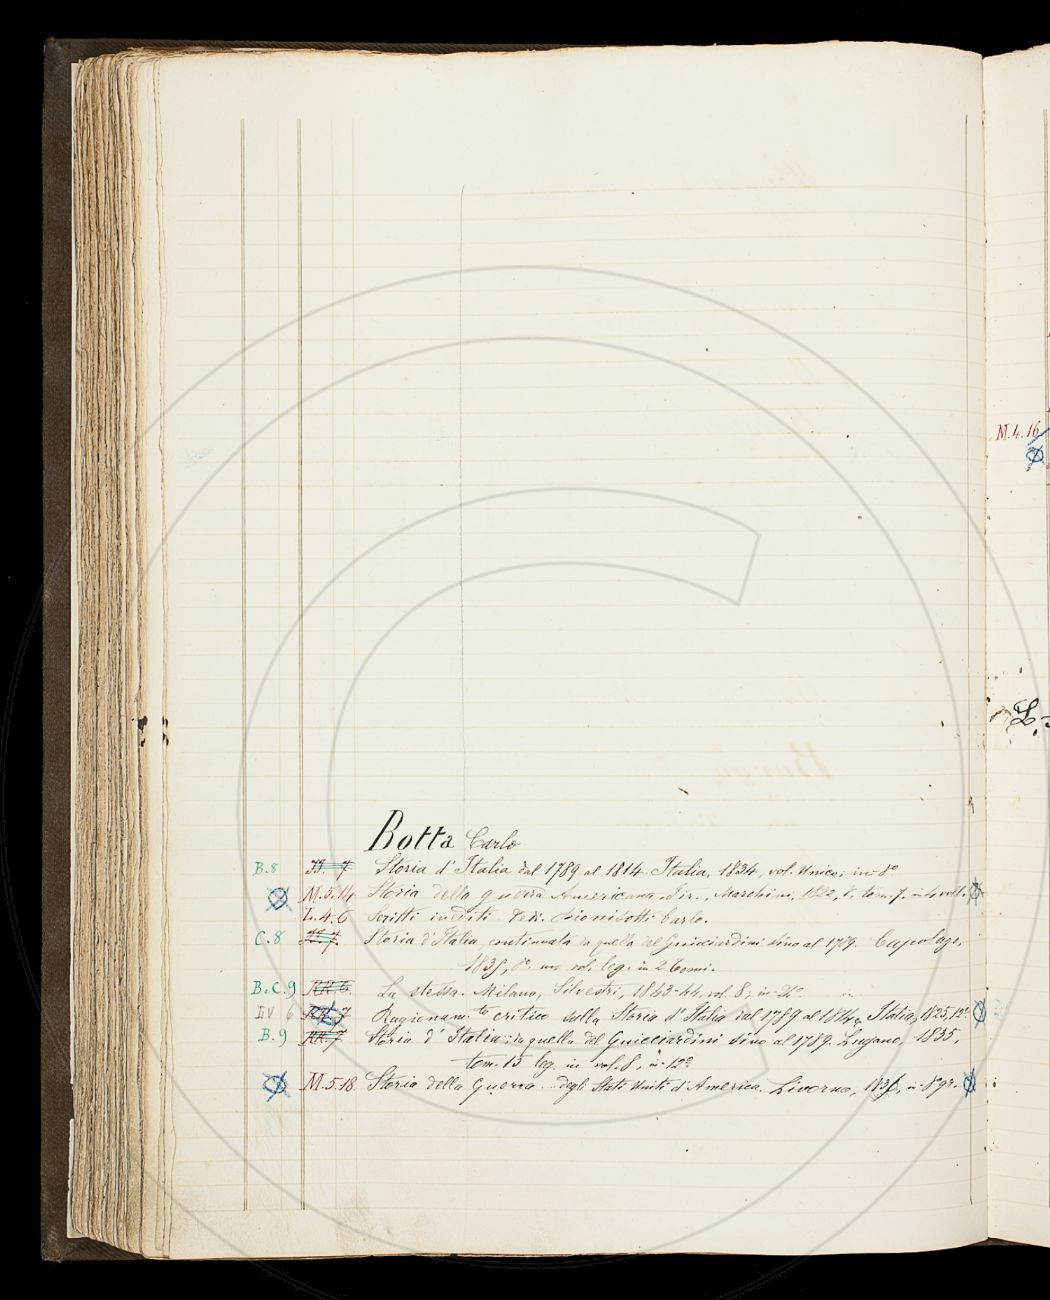 M.4.16
Botta Carlo
B.8 Storia d'Italia dal 1789 al 1814. Italia, 1834, vol. Unico; in-8°
M.5.14 Storia della guerra Americana. Fir., Marchini, 1822, tom. 7. in
L.4.6 Scritti inediti Carlo.
C.8 Storia d'Italia continuata da quella del Guicciardini sino al 1789. Capolago,
1835, 8° vol. leg. in 2 tomi.
B.C.9 RR.6. La stessa. Milano, Silvestri, 1843-44, vol. 8; in-
IV 6 Ragionam.to critico sulla Storia d'Italia dal 1789 al 1814. Italia, 1825, 12°
B.9 RR.7 Storia d'Italia da quella del Guicciardini sino al 1789. Lugano, 1835,
tom. 15 leg. in vol. 8, in-12°
M.5.18 Storia della Guerra degli Stati Uniti d'America. Livorno, in-8° gr.